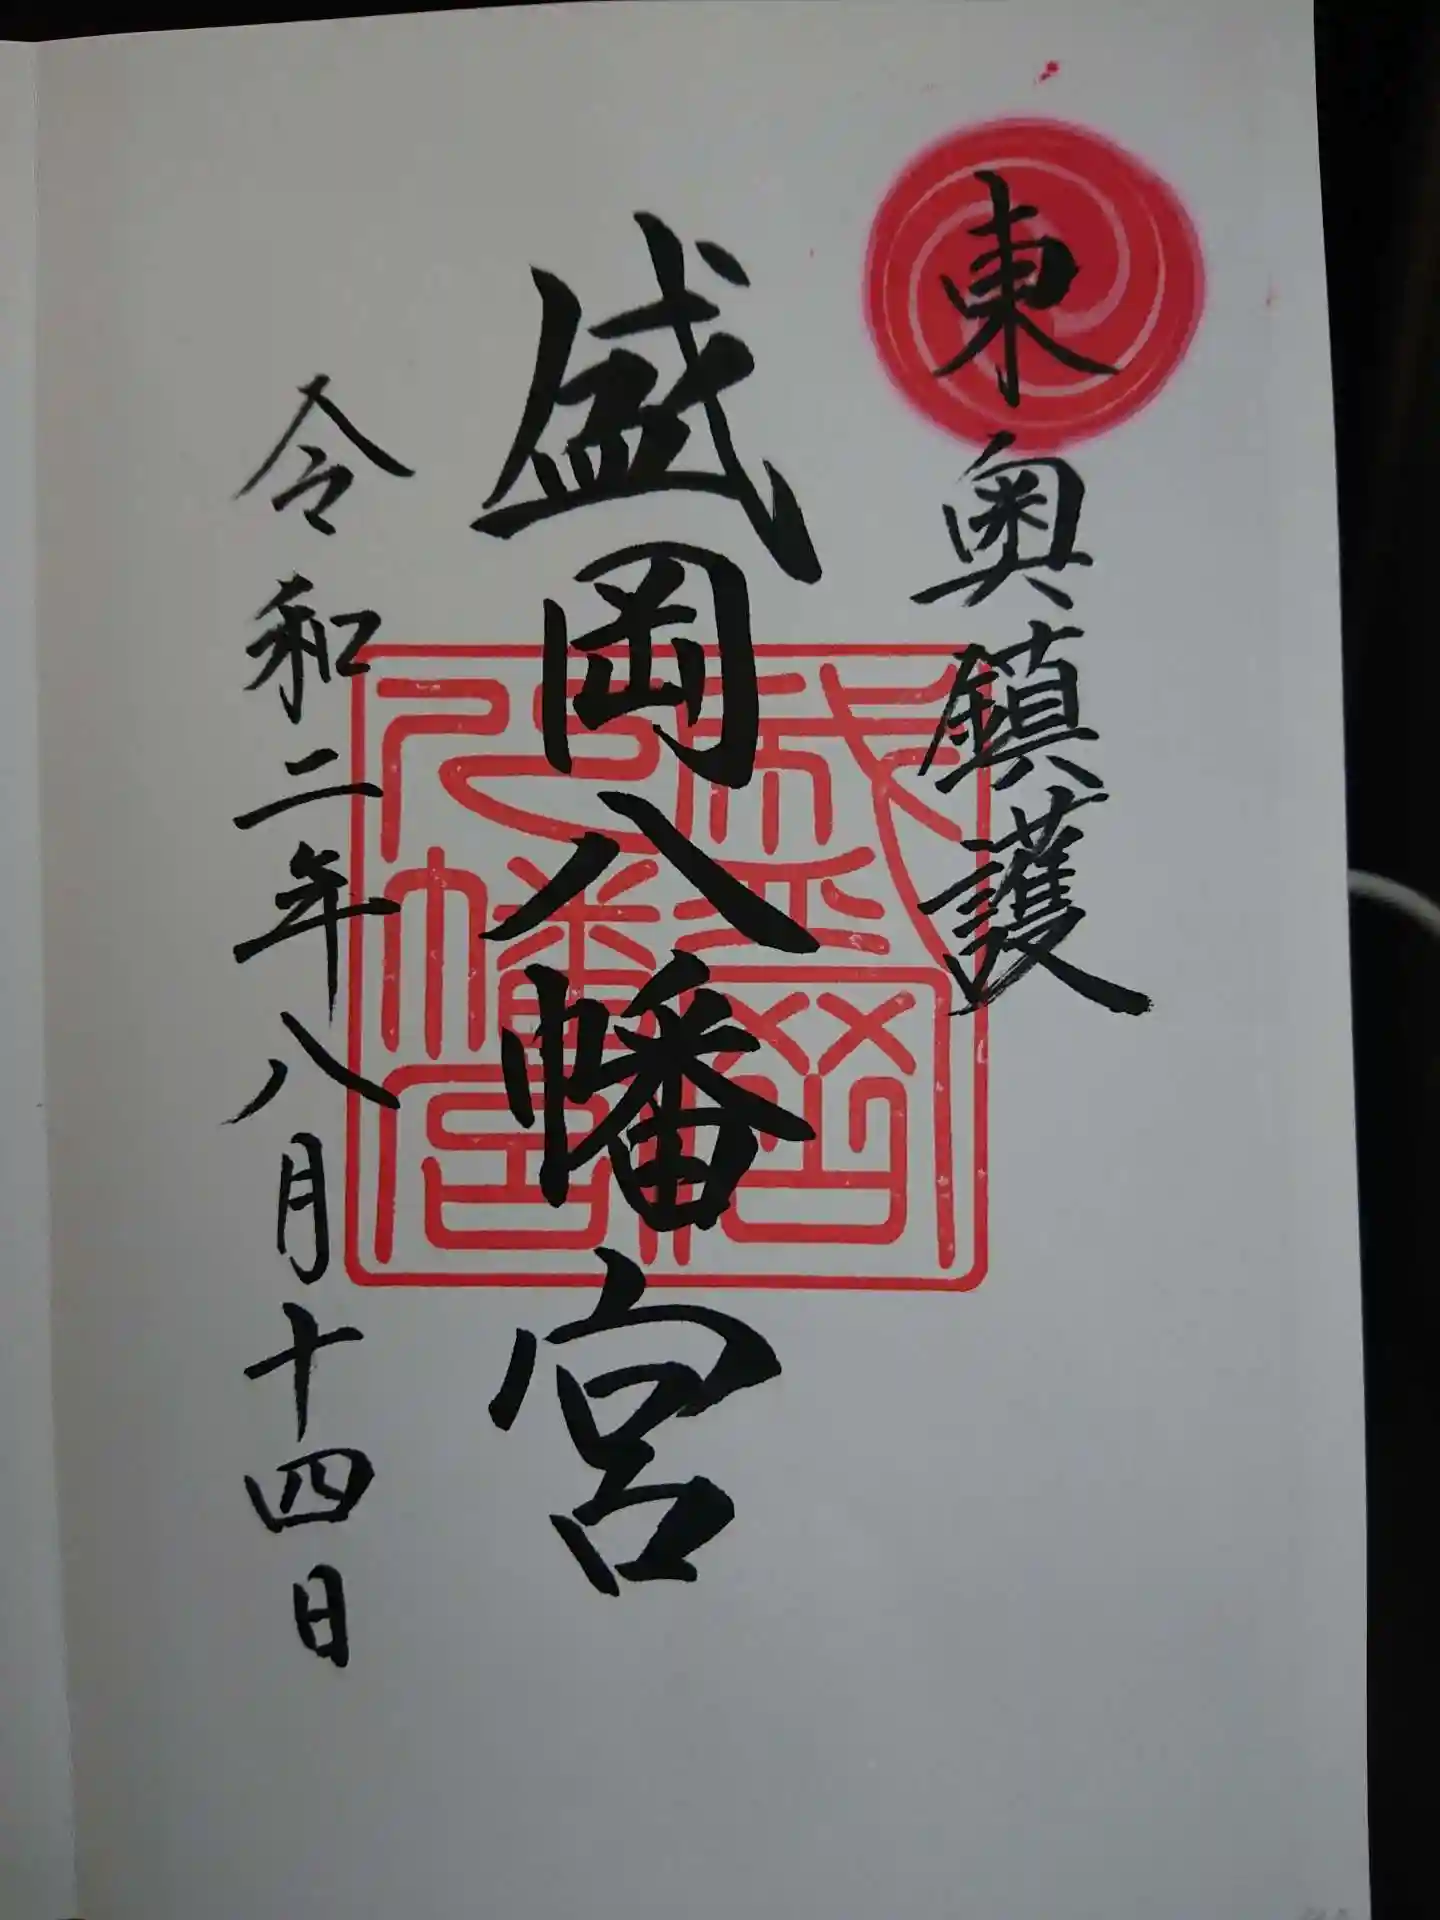 東奥鎮護
盛岡八幡宮
盛岡八幡宮
令和二年八月十四日